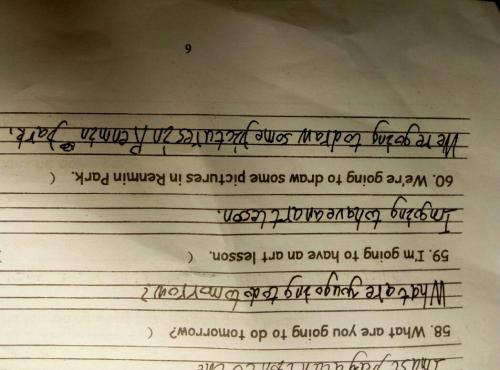 58. What are you going to do tomorrow? (
What are you going to do tomorrow?
59. I'm going to have an art lesson. (
Im going to have an art leson.
60. We're going to draw some pictures in Renmin Park. (
We're going to draw some pictures in Renmin park.